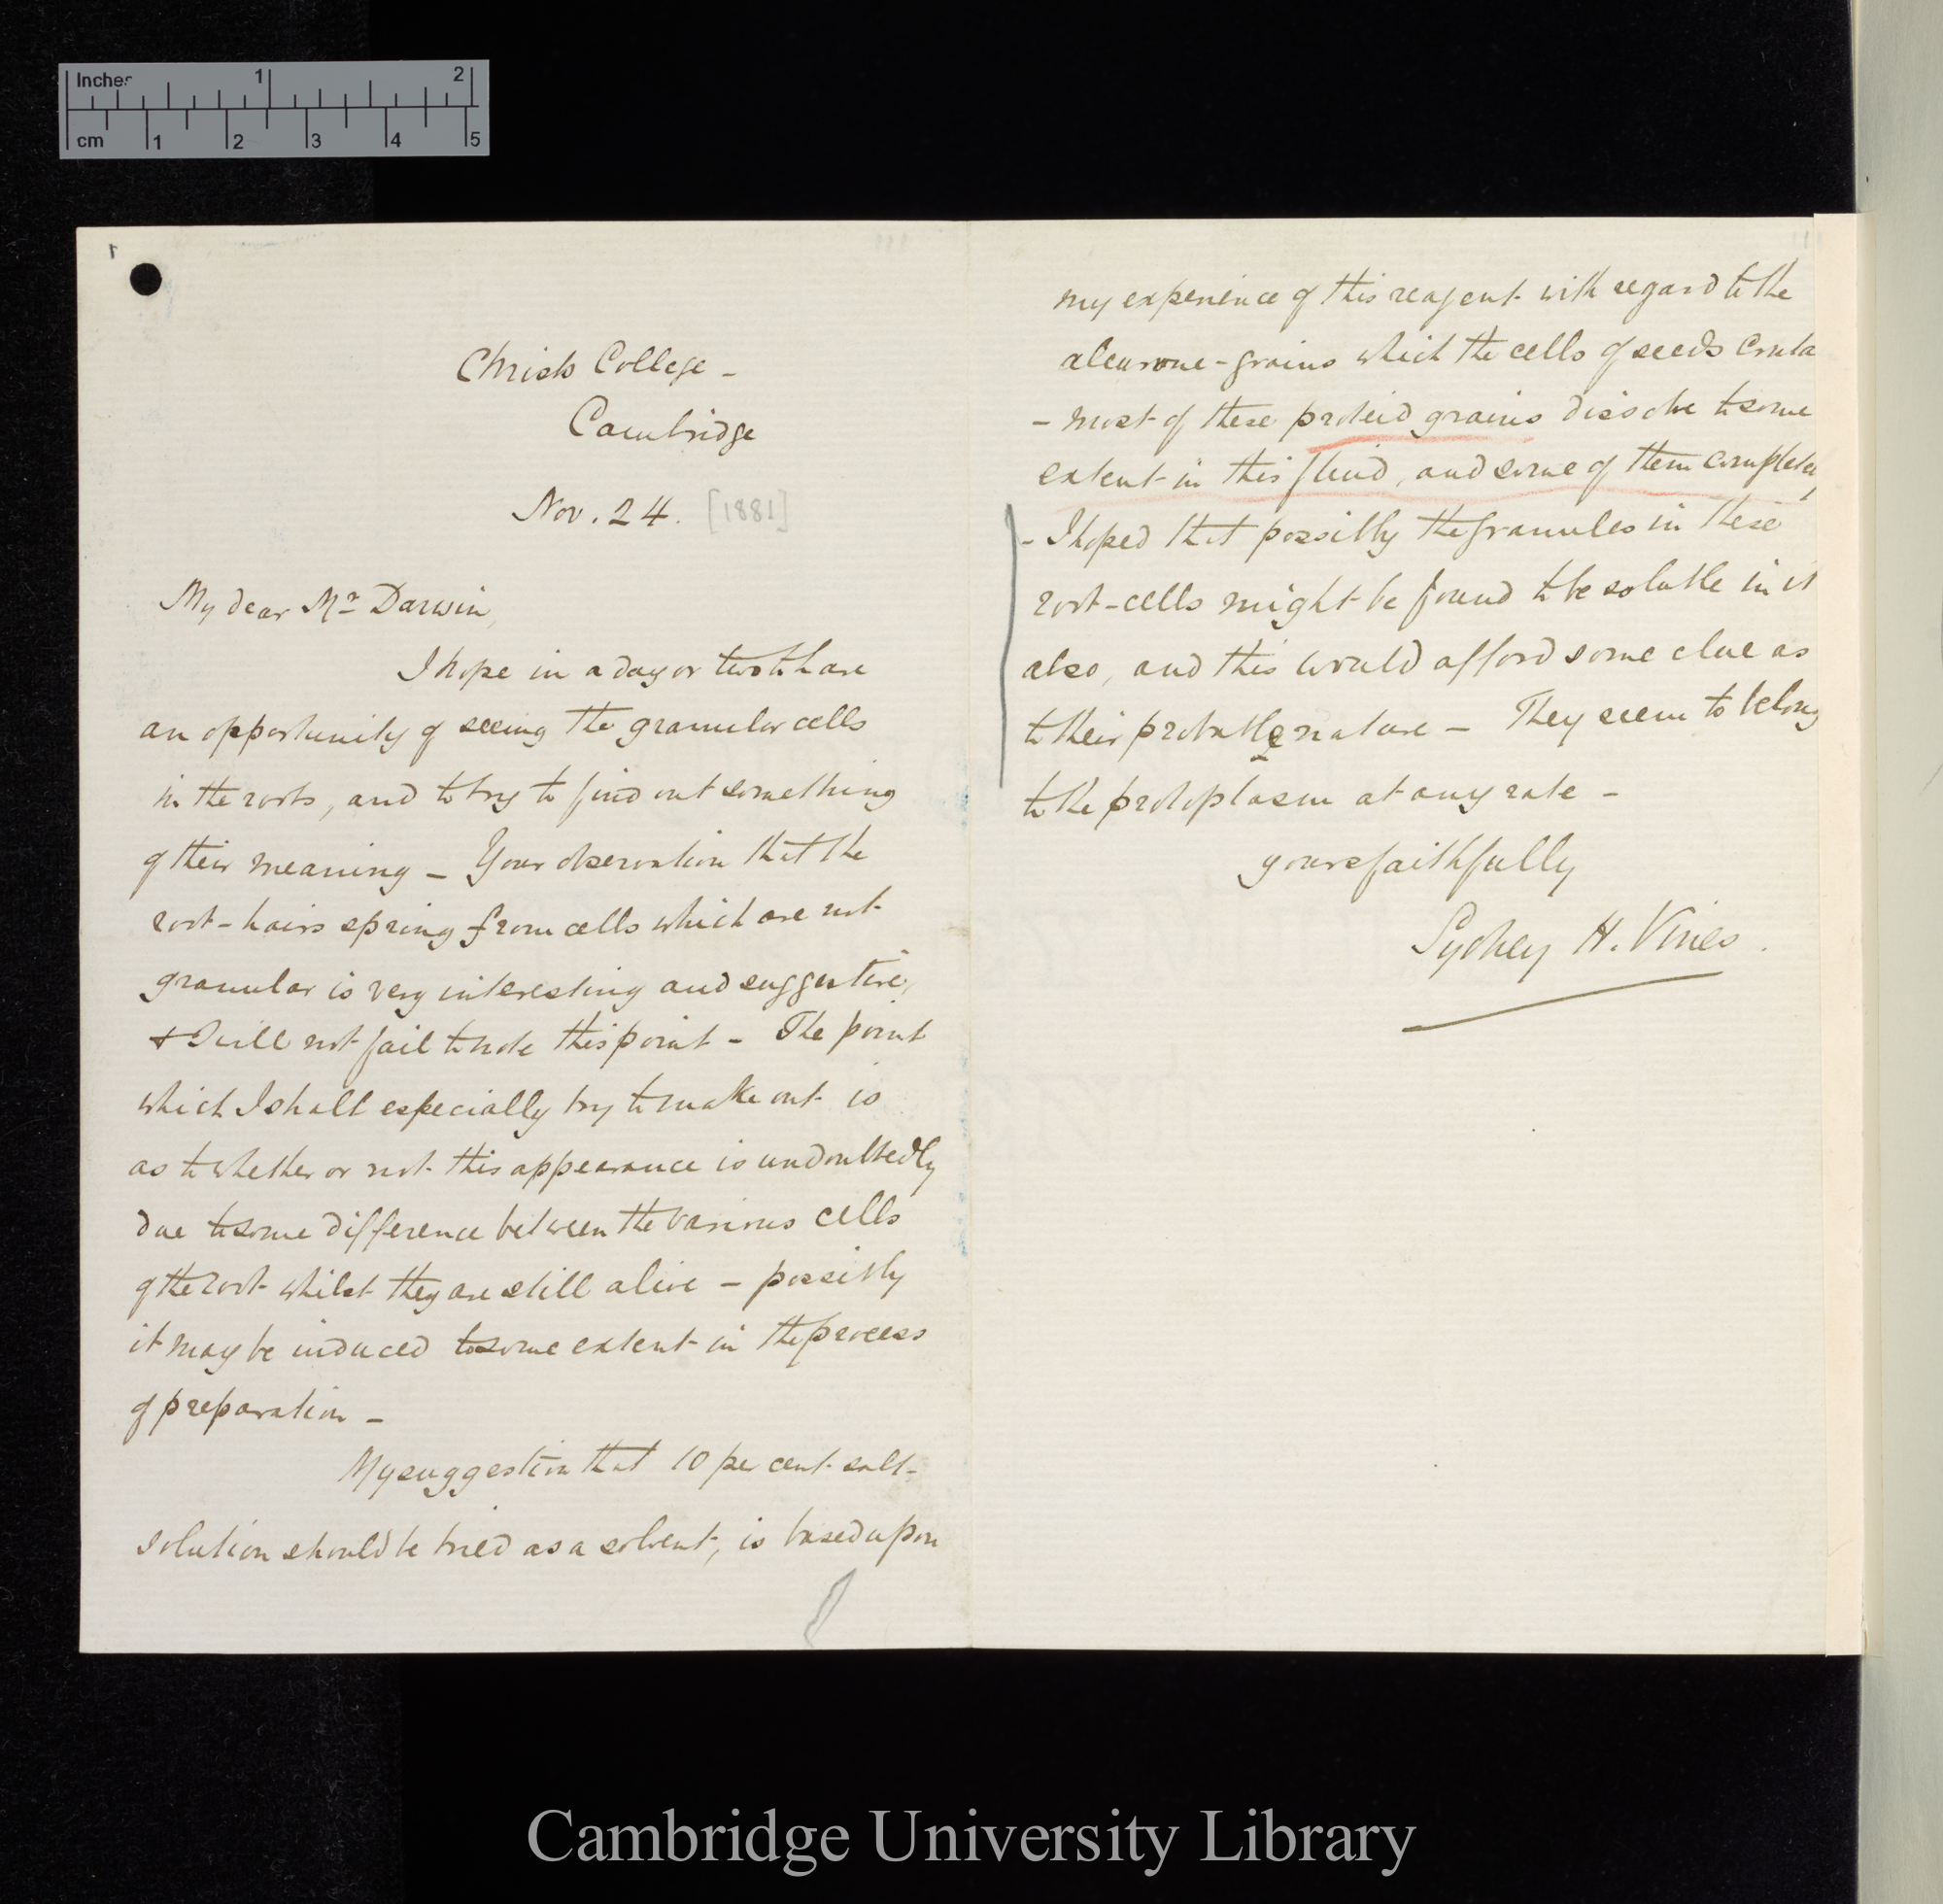 Inches 1 2
cm 1 2 3 4 5
1
Christs College -
Cambridge
Nov. 24. [1881]
My dear Mr Darwin,
I hope in a day or two to have
an opportunity of seeing the granular cells
in the roots, and to try to find out something
of their meaning – Your observation that the
root-hairs spring from cells which are not
granular is very interesting and suggestive,
& I will not fail to note this point – The point
which I shall especially try to make out is
as to whether or not this appearance is undoubtedly
due to some difference between the various cells
of the root whilst they are still alive – possibly
it may be induced to some extent in the process
of preparation –
My suggestion that 10 per cent salt-
solution should be tried as a solvent, is based upon
my experience of this reagent with regard to the
aleurone-grains which the cells of seeds conta
– most of these proteid grains dissolve to some
extent in this fluid, and some of them completely
– I hoped that possibly the granules in these
root-cells might be found to be soluble in it
also, and this would afford some clue as
to their probable nature – They seem to belong
to the protoplasm at any rate –
yours faithfully
Sydney H. Vines.
Cambridge University Library